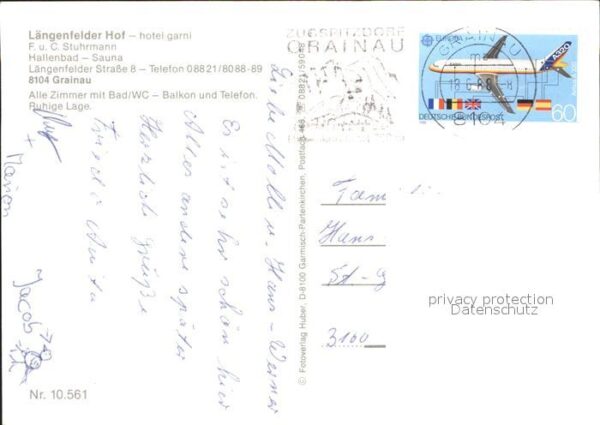 Längenfelder Hof – hotel garni
F. u. C. Stuhrmann
Hallenbad – Sauna
Längenfelder Straße 8 – Telefon 08821/8088-89
8104 Grainau
Alle Zimmer mit Bad/WC – Balkon und Telefon.
Ruhige Lage.
Liebe Molli u. Hans-Werner
Es ist sehr schön hier
Alles andere später
Herzliche Grüße
Anita
+
Marion
Jacob
Nr. 10.561
© Fotoverlag Huber, D-8100 Garmisch-Partenkirchen, Postfach 468, 08821/59048
ZUGSPITZDORF
GRAINAU
GRAINAU
8104
EUROPA
A320
DEUTSCHE BUNDESPOST
60
Familie
Hans
3100
privacy protection
Datenschutz